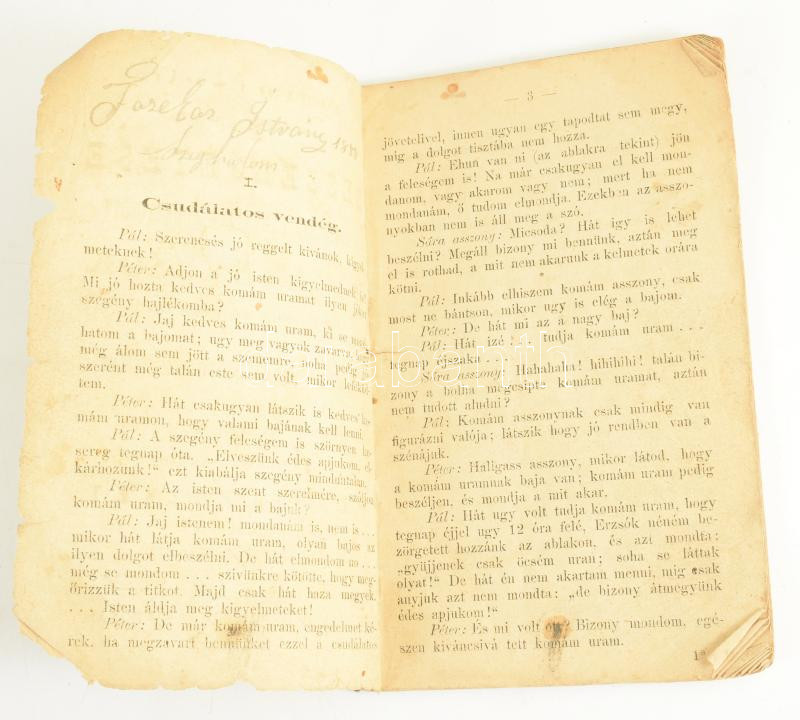 Fazekas István
I.
Csudálatos vendég.
Pál: Szerencsés jó reggelt kivánok,
meteknek!
Péter: Adjon a jó isten kigyelmednek
Mi jó hozta kedves komám uramat ilyen
szegény hajlékomba?
Pál: Jaj kedves komám uram, ki se
hatom a bajomat; ugy meg vagyok zavarva,
még álom sem jött a szememre, noha pedig
szerént még talán este sem volt, mikor
tem.
Péter: Hát csakugyan látszik is kedves ko-
mám uramon, hogy valami bajának kell lenni.
Pál: A szegény feleségem is szörnyen ke-
sereg tegnap óta. „Elveszünk édes apjukom, el-
kárhozunk!“ ezt kiabálja szegény minduntalan.
Péter: Az isten szent szerelmére, szóljon
komám uram, mondja mi a bajuk?
Pál: Jaj istenem! mondanám is, nem is . . .
mikor hát látja komám uram, olyan bajos az
ilyen dolgot elbeszélni. De hát elmondom no . . .
még se mondom . . . szivünkre kötötte, hogy meg-
őrizzük a titkot. Majd csak hát haza megyek.
. . . Isten áldja meg kigyelmeteket!
Péter: De már komám uram, engedelmet ké-
rek, ha megzavart bennünket ezzel a csudálatos
— 3 —
jövetelivel, innen ugyan egy tapodtat sem megy,
mig a dolgot tisztába nem hozza.
Pál: Ehun van ni (az ablakra tekint) jön
a feleségem is! Na már csakugyan el kell mon-
danom, vagy akarom vagy nem; mert ha nem
mondanám, ő tudom elmondja. Ezekben az asszo-
nyokban nem is áll meg a szó.
Sára asszony: Micsoda? Hát igy is lehet
beszélni? Megáll bizony mi bennünk, aztán meg
el is rothad, a mit nem akarunk a kelmetek orára
kötni.
Pál: Inkább elhiszem komám asszony, csak
most ne bántson, mikor ugy is elég a bajom.
Péter: De hát mi az a nagy baj?
Pál: Hát izé . . . tudja komám uram . . .
tegnap éjszaka . . .
Sára asszony: Hahahaha! hihihihi! talán bi-
zony a bolha megcsipte komám uramat, aztán
nem tudott aludni?
Pál: Komám asszonynak csak mindig van
figurázni valója; látszik hogy jó rendben van a
szénájuk.
Péter: Hallgass asszony, mikor látod, hogy
a komám uramnak baja van; komám uram pedig
beszéljen, és mondja a mit akar.
Pál: Hát ugy volt tudja komám uram, hogy
tegnap éjjel ugy 12 óra felé, Erzsók néném be-
zörgetett hozzánk az ablakon, és azt mondta:
„gyüjjenek csak öcsém uran; soha se láttak
olyat!“ De hát én nem akartam menni, mig csak
anyjuk azt nem mondta: „de bizony átmegyünk
édes apjukom!“
Péter: És mi volt ott? Bizony mondom, egé-
szen kiváncsivá tett komám uram.
1*